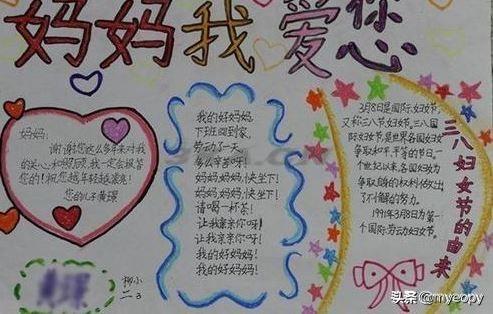 妈妈我爱您
妈妈:
谢谢您这么多年来对我
的关心和照顾,我一定会报答
您的!祝您越来越漂亮!
您的儿子黄璟
我的好妈妈
下班回到家,
劳动了一天
多么辛苦呀!
妈妈妈妈,快坐下!
妈妈妈妈,快坐下!
请喝一杯茶!
让我亲亲你呀!
让我亲亲你呀!
我的好妈妈!
我的好妈妈!
3月8日是国际妇女节,
又称三八节、妇女节、三八国
际妇女节,是世界各国妇女
争取和平、平等的节日。一
个世纪以来,各国妇女为
争取自身的权利做出
了不懈的努力。
1991年3月8日为第一
个国际劳动妇女节。
三八妇女节的由来
柳小
二3
头条 @myeopy